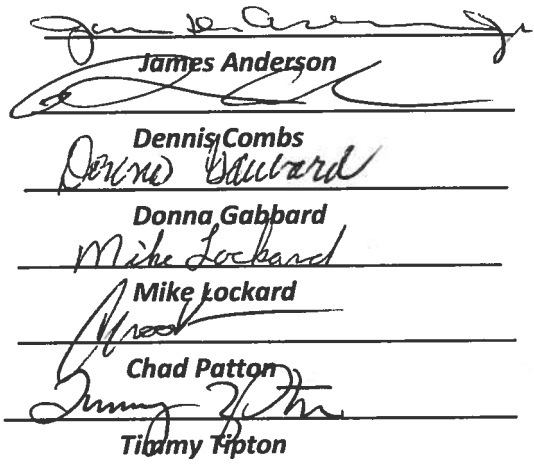 James Anderson Jr
James Anderson
Dennis Combs
Donna Gabbard
Donna Gabbard
Mike Lockard
Mike Lockard
Chad Patton
Timmy Tipton
Timmy Tipton